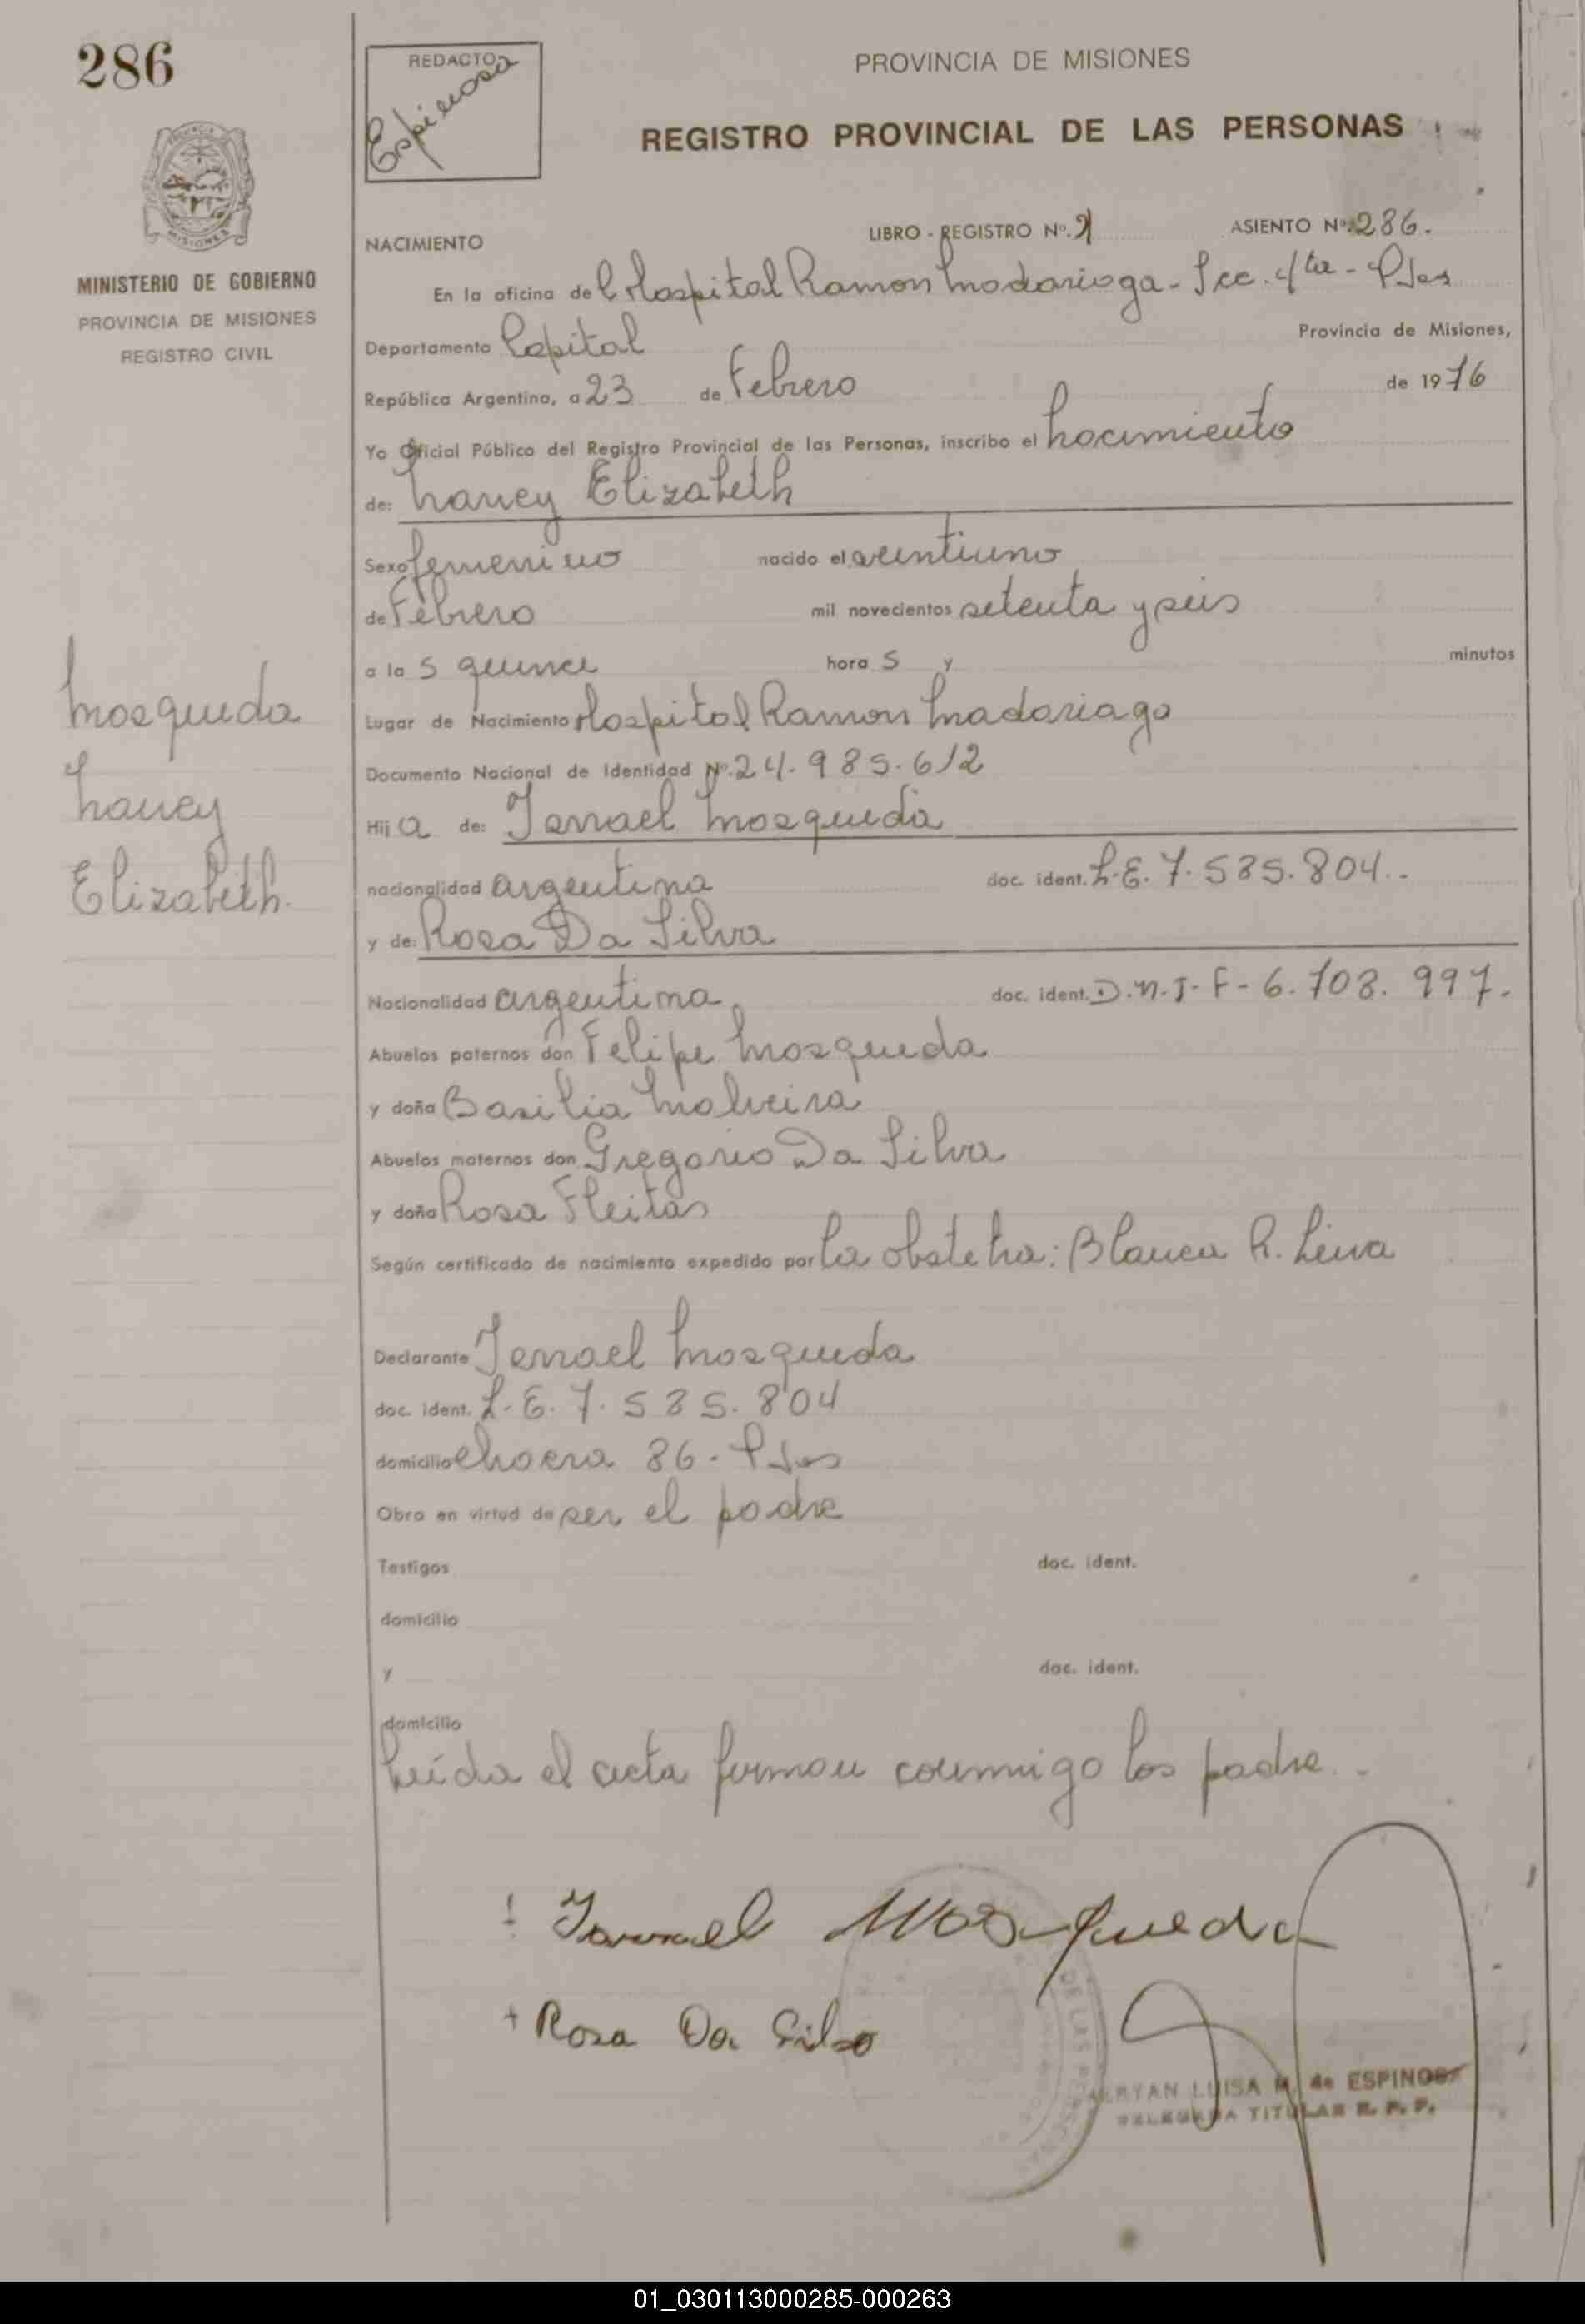 286
REDACTO
Espinosa
PROVINCIA DE MISIONES
REGISTRO PROVINCIAL DE LAS PERSONAS
MINISTERIO DE GOBIERNO
PROVINCIA DE MISIONES
REGISTRO CIVIL
NACIMIENTO
LIBRO - REGISTRO Nº.
ASIENTO Nº 286.
En la oficina del Hospital Ramon Madariaga - Scc. 4ta - Pdas
Departamento Capital Provincia de Misiones,
República Argentina, a 23 de Febrero de 1976
Yo Oficial Público del Registro Provincial de las Personas, inscribo el nacimiento
de: Nancy Elizabeth
Sexo femenino nacido el veintiuno
de Febrero mil novecientos setenta y seis
a la s quince hora s y minutos
Lugar de Nacimiento Hospital Ramon Madariaga
Documento Nacional de Identidad Nº. 24.985.612
Hij a de: Ismael Mosqueda
nacionalidad argentina doc. ident. L.E. 7.585.804.
y de: Rosa Da Silva
Nacionalidad argentina doc. ident. D.N.I-F-6.708.997.
Abuelos paternos don Felipe Mosqueda
y doña Basilia Malveira
Abuelos maternos don Gregorio Da Silva
y doña Rosa Fleitas
Según certificado de nacimiento expedido por la obstetra: Blanca R. Leiva
Declarante Ismael Mosqueda
doc. ident. L.E. 7.585.804
domicilio chacra 86 - Pdas
Obra en virtud de ser el padre
Testigos doc. ident.
domicilio
y doc. ident.
domicilio
Leída el acta firman conmigo los padre..
Mosqueda
Nancy
Elizabeth.
Ismael Mosqueda
+ Rosa Da Silva
LUISA M. de ESPINOSA
DELEGADA TITULAR R. P. P.
01_030113000285-000263